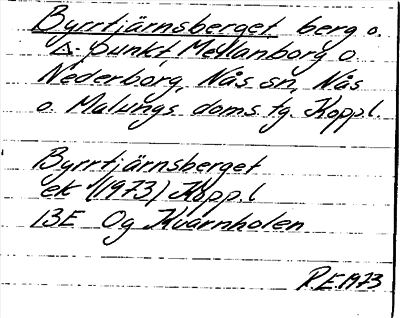 Byrrtjärnsberget berg o.
△-punkt, Mellanborg o
Nederborg, Nås sn, Nås
o. Malungs doms. tg. Koppl.
Byrrtjärnsberget
ek (1973) Kopp.l
13E 0g Kvarnholen
R.E. 1973